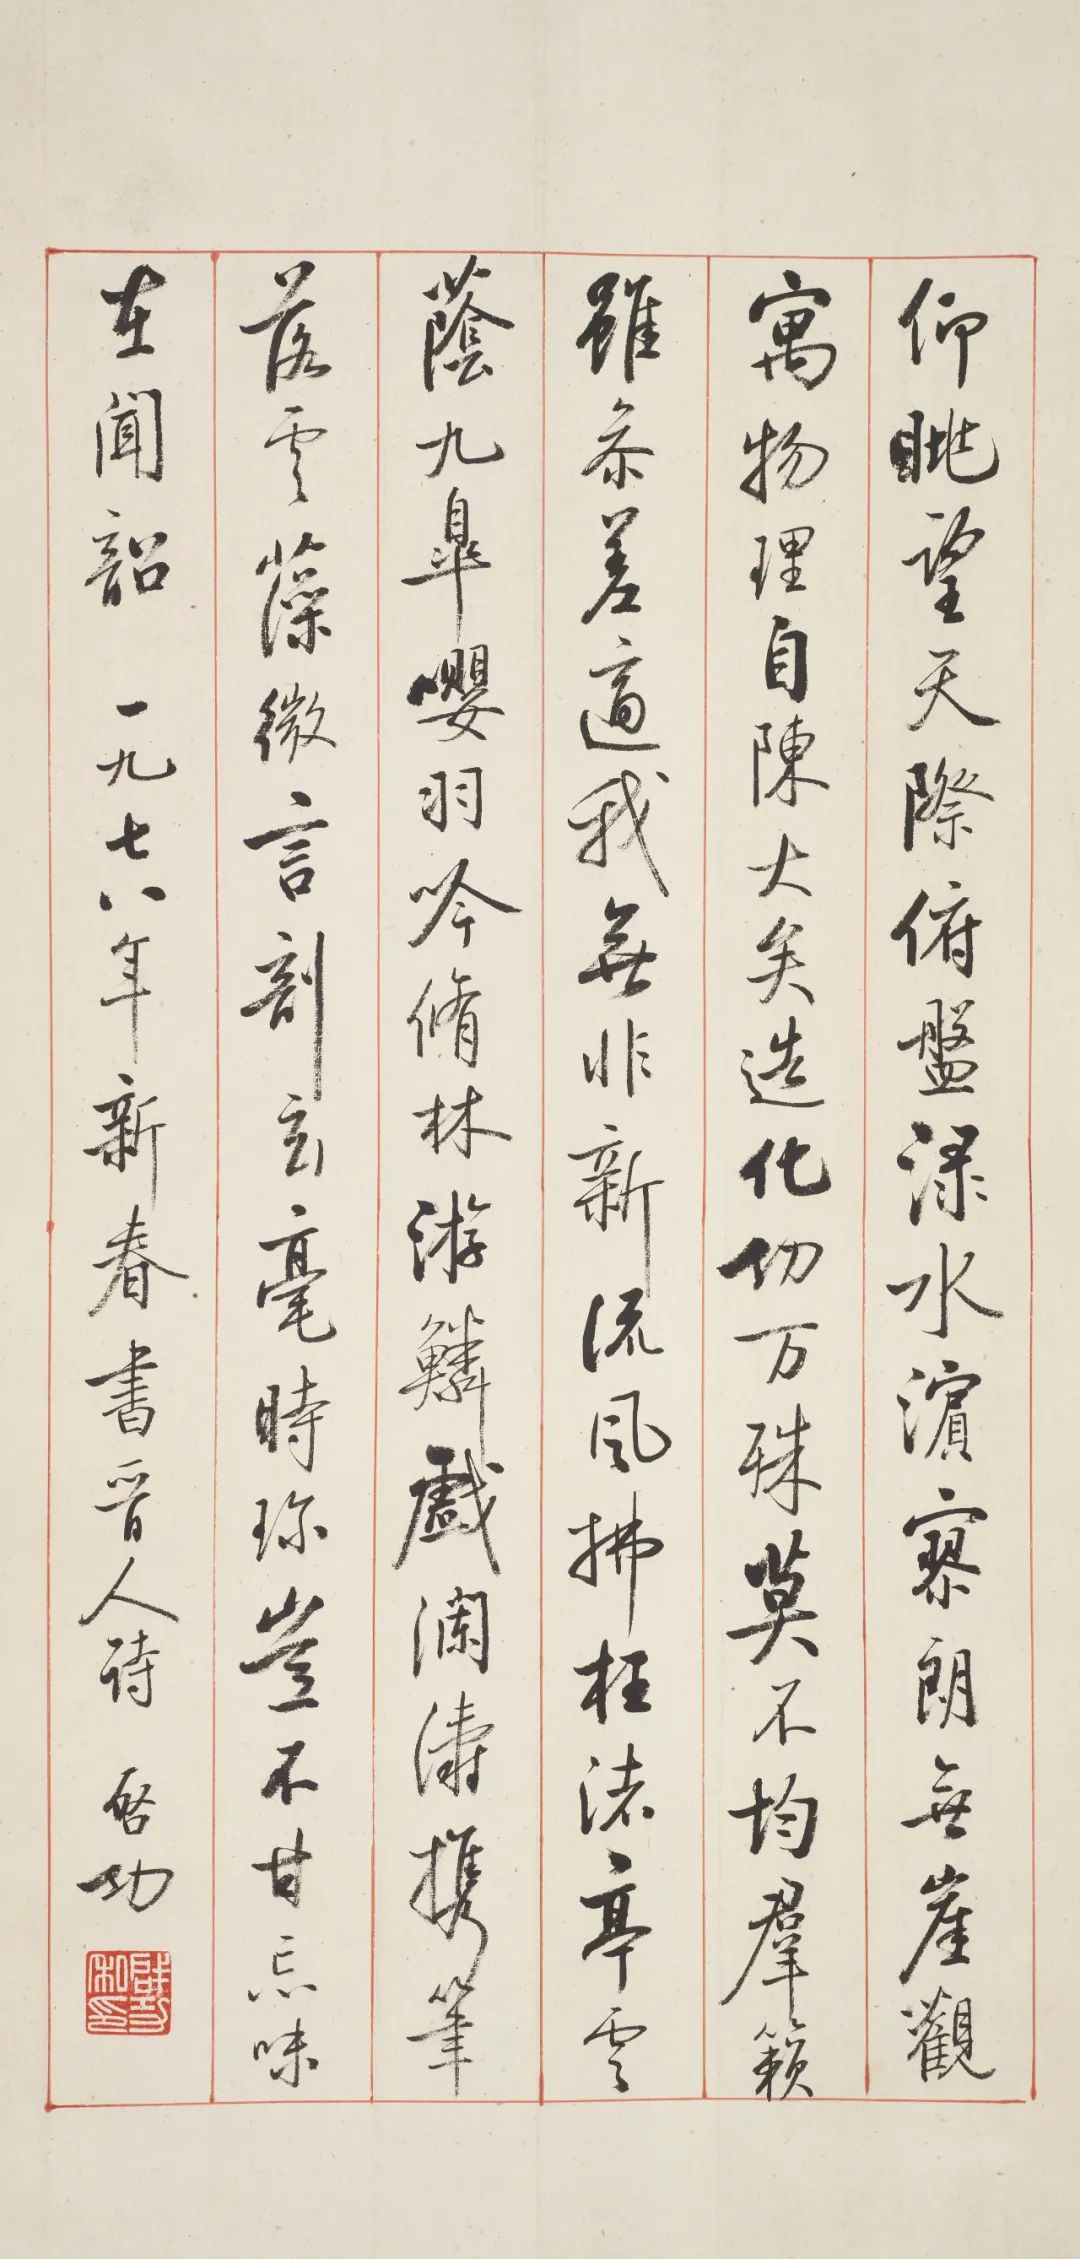 仰眺望天際俯盤渌水濵寥朗無崖觀
寓物理自陳大矣造化功万殊莫不均羣籟
雖参差適我無非新流風拂枉渚亭雲
蔭九皐嚶羽吟脩林游鱗戲瀾濤攜筆
落雲藻微言剖玄毫時珍豈不甘忘味
在聞韶 一九七八年新春書晋人詩 啓功